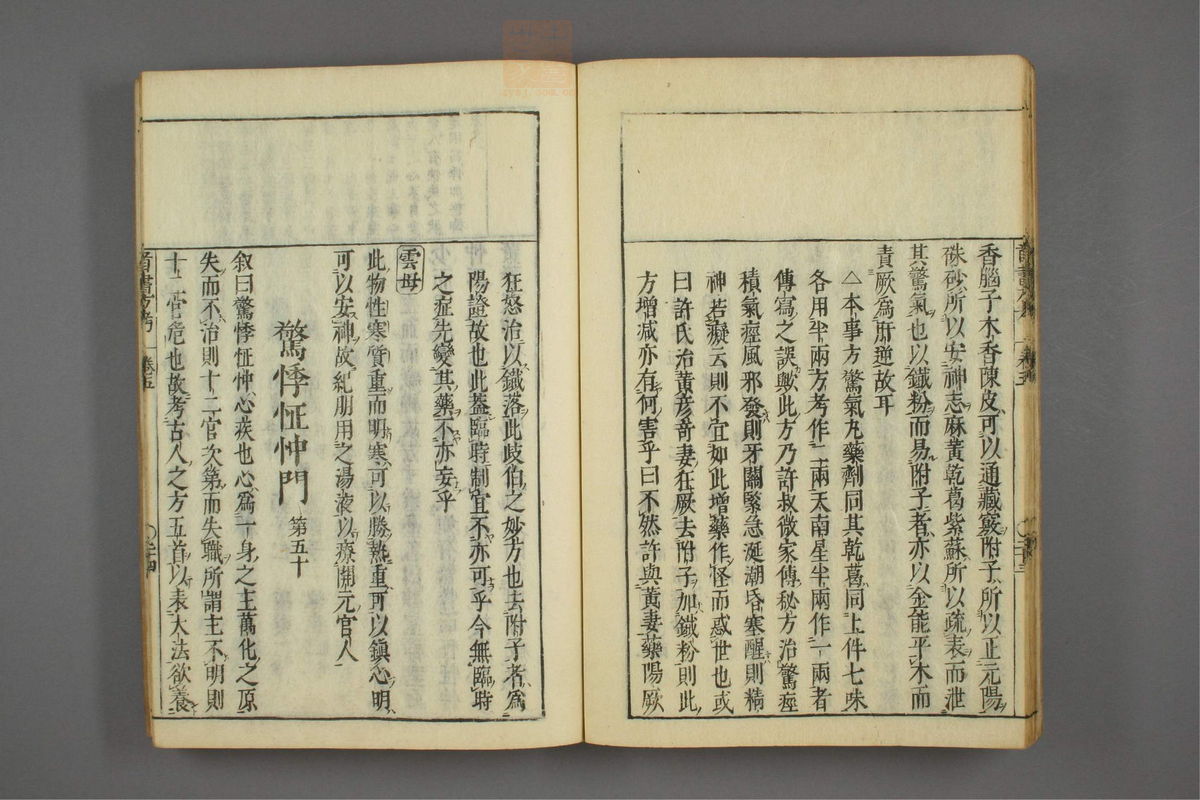 香腦子木香陳皮可以通藏竅附子所以正元陽
硃砂所以安神志麻黃乾葛紫蘇所以疏表而泄
其驚氣也以鐵粉而易附子者亦以金能平木而
責厥爲肝逆故耳
△本事方驚氣丸藥劑同其乾葛同上件七味
各用半兩方考作一兩天南星半兩作一兩者
傳寫之誤歟此方乃許叔微家傳秘方治驚痙
積氣痙風邪發則牙關緊急涎潮昏塞醒則精
神若癡云則不宜如此增藥作怪而惑世也或
曰許氏治黃彥奇妻狂厥去附子加鐵粉則此
方增減亦有何害乎曰不然許與黃妻藥陽厥
狂怒治以鐵落此歧伯之妙方也去附子者爲
陽證故也此蓋臨時制宜不亦可乎今無臨時
之症先變其藥不亦妄乎
雲母
此物性寒質重而明寒可以勝熱重可以鎮心明
可以安神故紀朋用之湯液以療開元宮人
驚悸怔忡門 第五十
叙曰驚悸怔忡心疾也心爲一身之主萬化之原
失而不治則十二官次第而失職所謂主不明則
十二官危也故考古人之方五首以表大法欲養
醫書方考 卷五